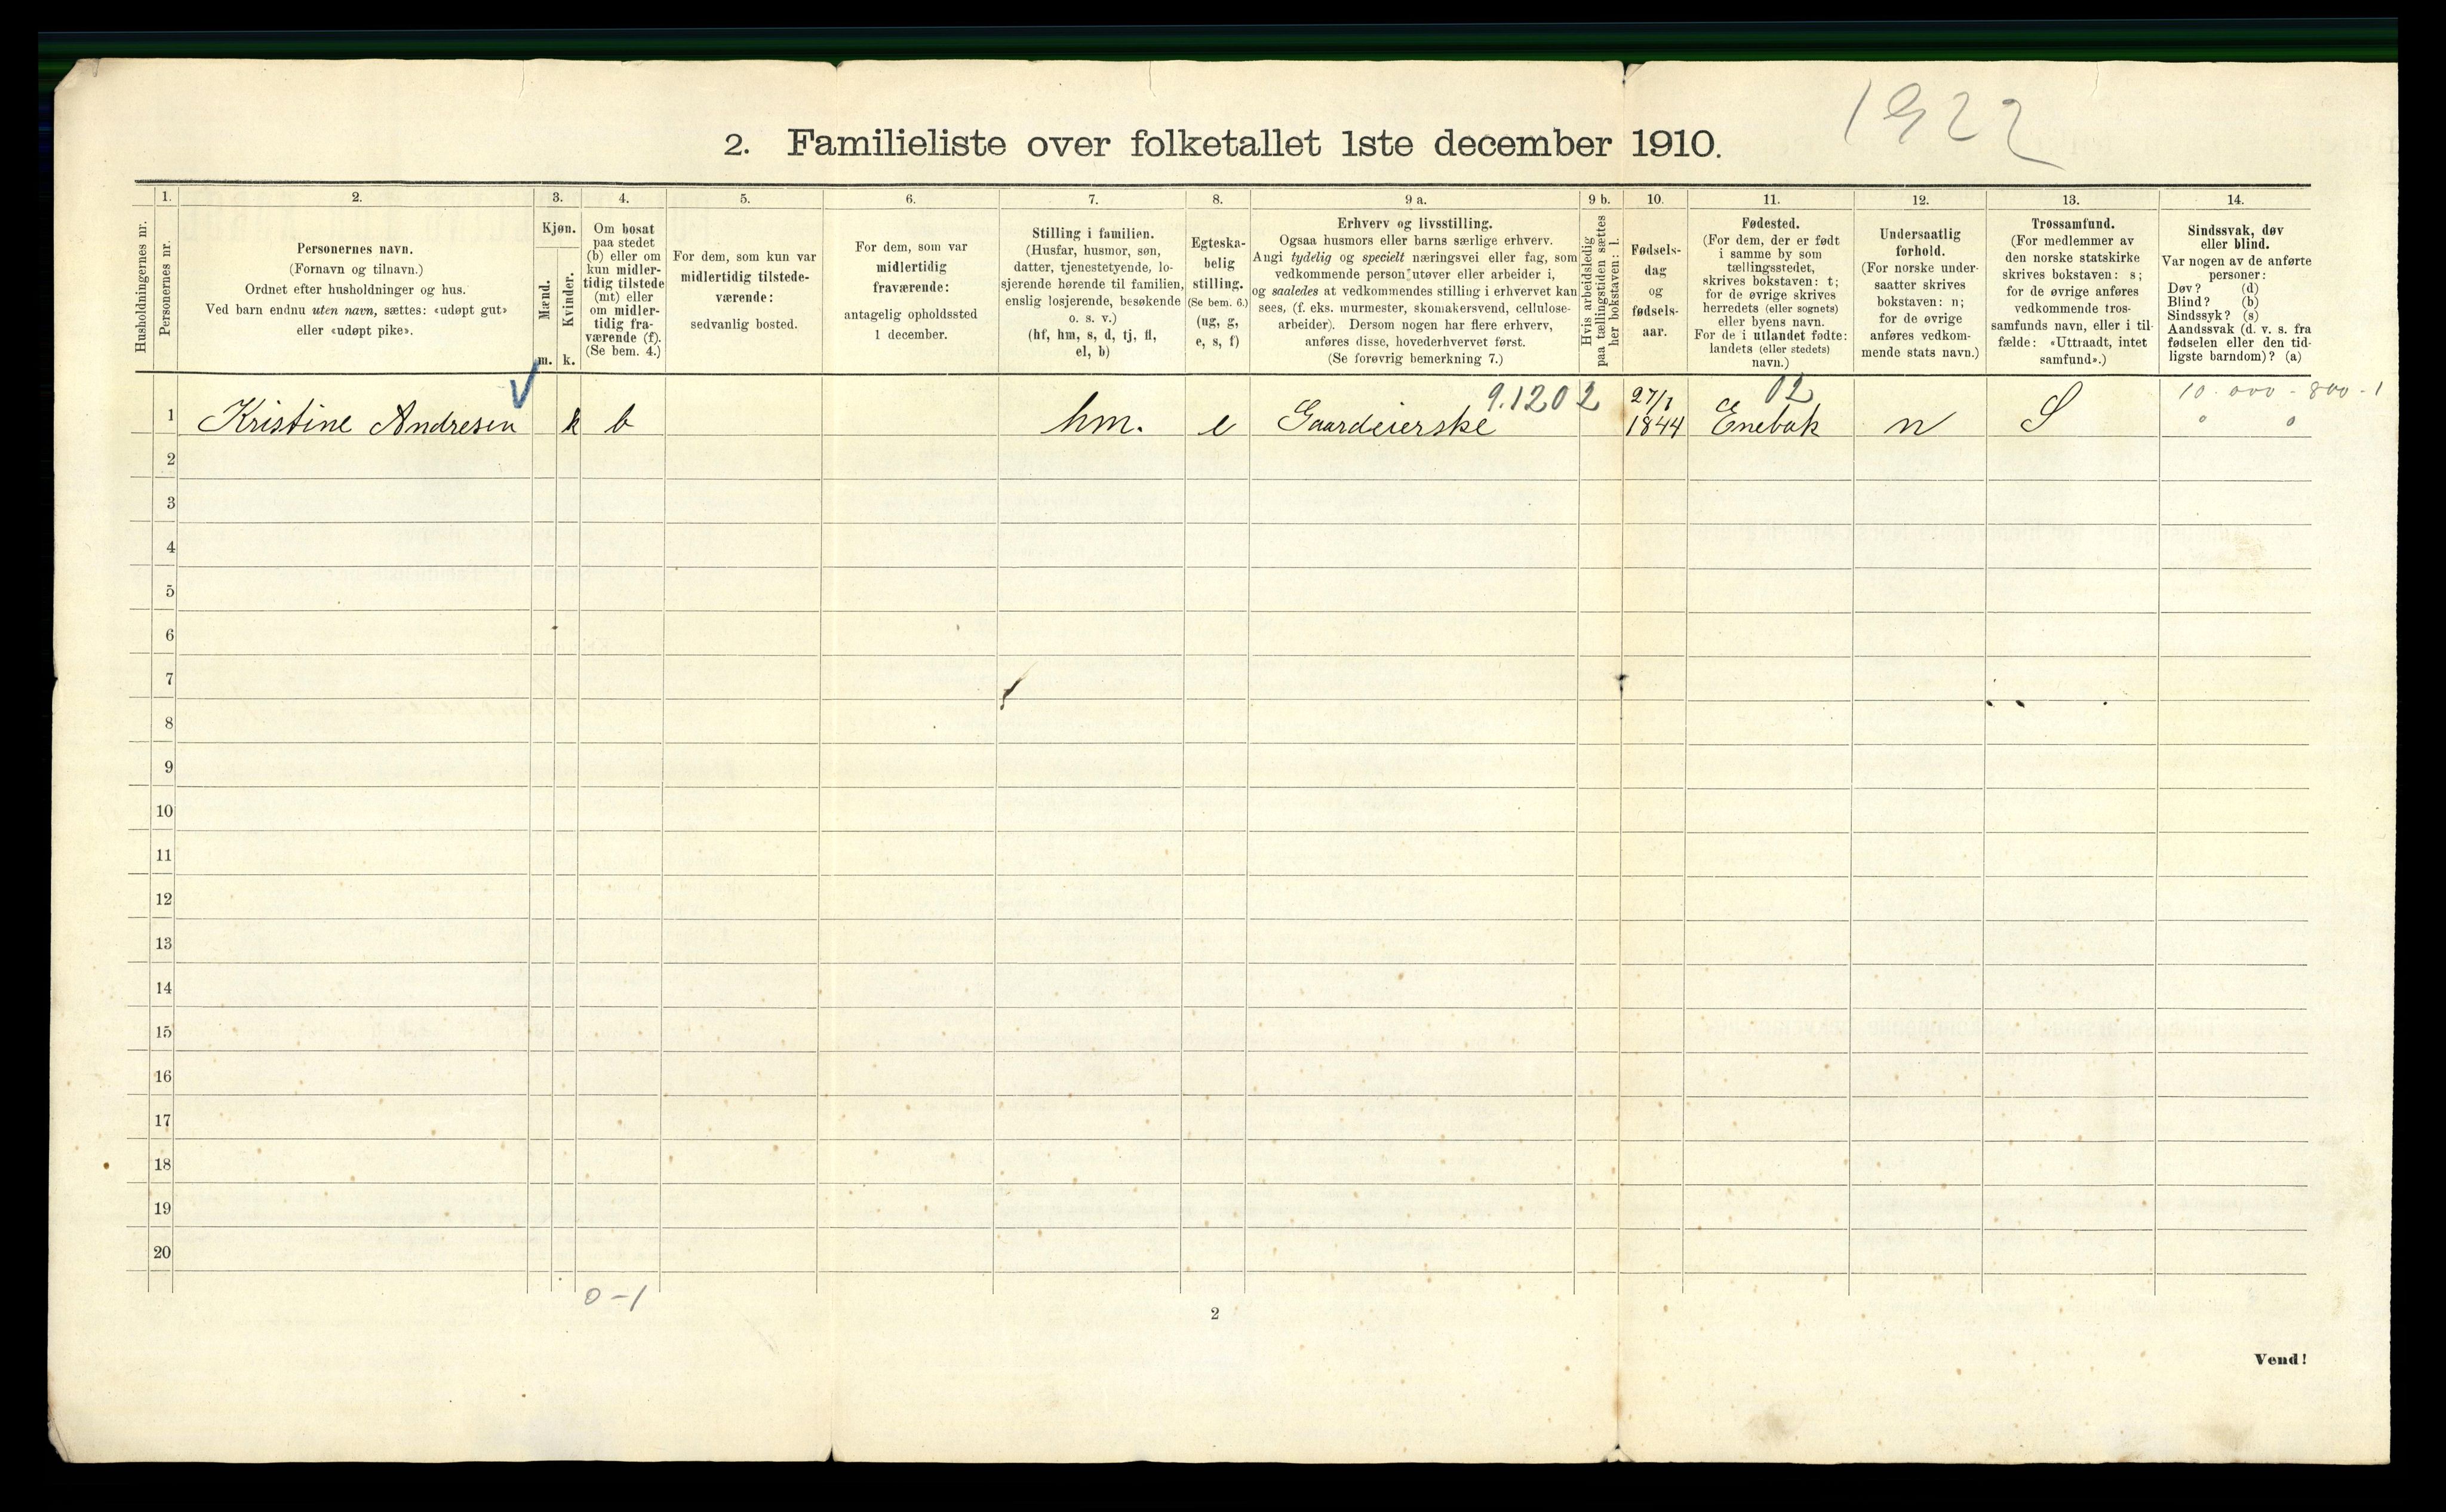 1922
2. Familieliste over folketallet 1ste december 1910.
Husholdningernes nr.
1.
Personernes nr.
2.
Personernes navn.
(Fornavn og tilnavn.)
Ordnet efter husholdninger og hus.
Ved barn endnu uten navn, sættes: «udøpt gut»
eller «udøpt pike».
3.
Kjøn.
Mænd.
m.
Kvinder.
k.
4.
Om bosat
paa stedet
(b) eller om
kun midler-
tidig tilstede
(mt) eller
om midler-
tidig fra-
værende (f).
(Se bem. 4.)
5.
For dem, som kun var
midlertidig tilstede-
værende:
sedvanlig bosted.
6.
For dem, som var
midlertidig
fraværende:
antagelig opholdssted
1 december.
7.
Stilling i familien.
(Husfar, husmor, søn,
datter, tjenestetyende, lo-
sjerende hørende til familien,
enslig losjerende, besøkende
o. s. v.)
(hf, hm, s, d, tj, fl,
el, b)
8.
Egteska-
belig
stilling.
(Se bem. 6.)
(ug, g,
e, s, f)
9 a.
Erhverv og livsstilling.
Ogsaa husmors eller barns særlige erhverv.
Angi tydelig og specielt næringsvei eller fag, som
vedkommende person utøver eller arbeider i,
og saaledes at vedkommendes stilling i erhvervet kan
sees, (f. eks. murmester, skomakersvend, cellulose-
arbeider). Dersom nogen har flere erhverv,
anføres disse, hovederhvervet først.
(Se forøvrig bemerkning 7.)
9 b.
Hvis arbeidsledig
paa tællingstiden sættes
her bokstaven: l.
10.
Fødsels-
dag
og
fødsels-
aar.
11.
Fødested.
(For dem, der er født
i samme by som
tællingsstedet,
skrives bokstaven: t;
for de øvrige skrives
herredets (eller sognets)
eller byens navn.
For de i utlandet fødte:
landets (eller stedets)
navn.)
12.
Undersaatlig
forhold.
(For norske under-
saatter skrives
bokstaven: n;
for de øvrige
anføres vedkom-
mende stats navn.)
13.
Trossamfund.
(For medlemmer av
den norske statskirke
skrives bokstaven: s;
for de øvrige anføres
vedkommende tros-
samfunds navn, eller i til-
fælde: «Uttraadt, intet
samfund».)
14.
Sindssvak, døv
eller blind.
Var nogen av de anførte
personer:
Døv? (d)
Blind? (b)
Sindssyk? (s)
Aandssvak (d. v. s. fra
fødselen eller den tid-
ligste barndom)? (a)
9.1202 02 10.000 - 800 - 1
1 Kristine Andresen k b hm. e Gaardeierske 1844 Enebak n S 0 0
2
3
4
5
6
7
8
9
10
11
12
13
14
15
16
17
18
19
20
0-1
2
Vend!